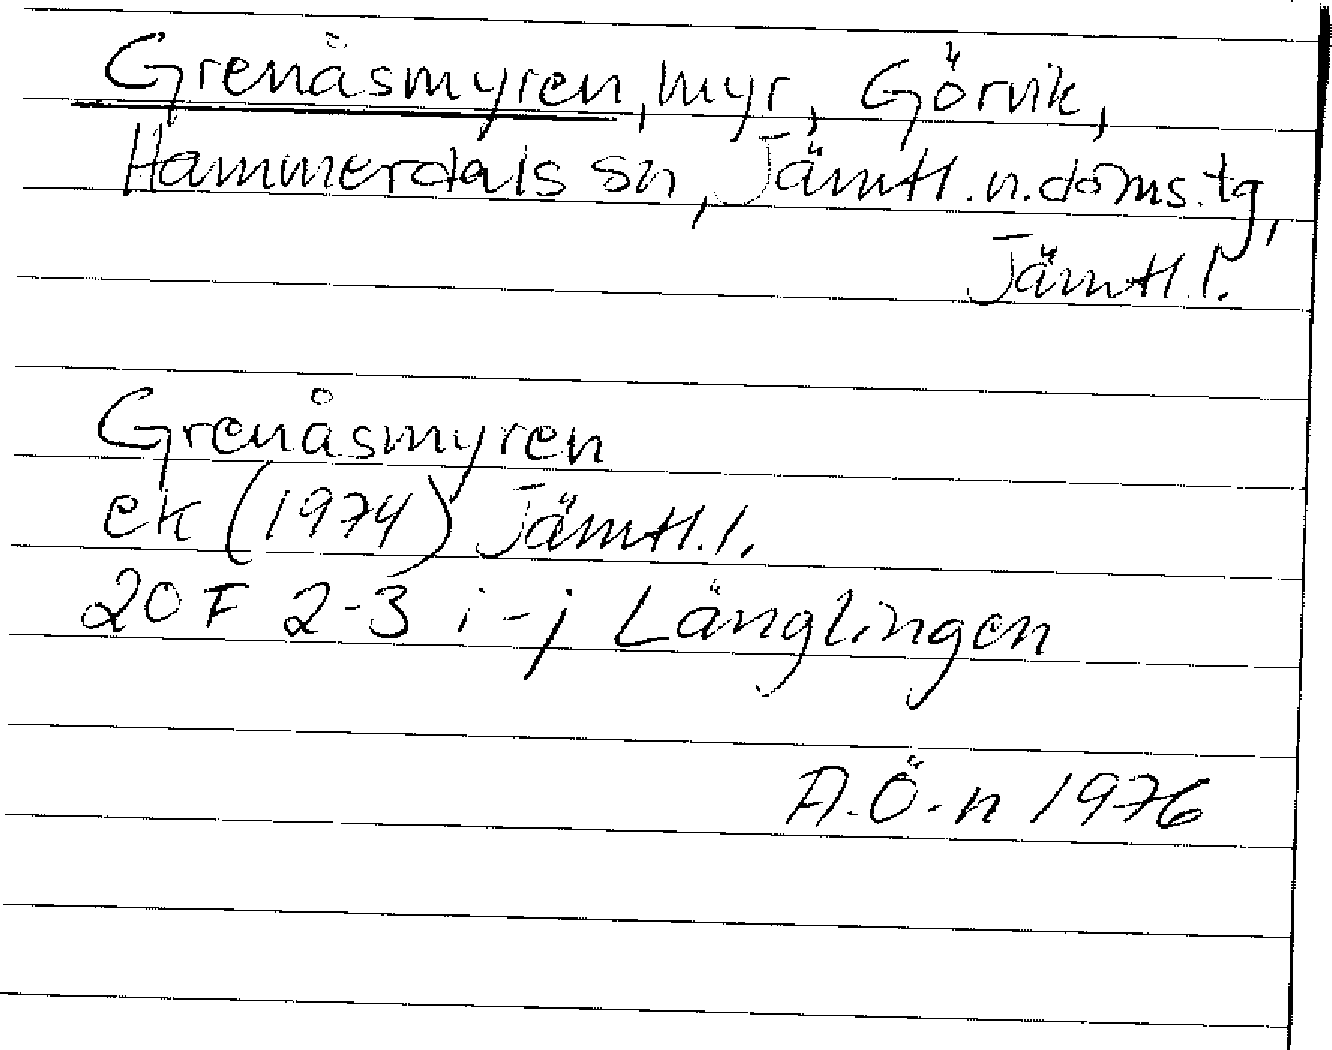 Grenåsmyren, myr, Görvik,
Hammerdals sn, Jämtl. n. doms. tg,
Jämtl. l.
Grenåsmyren
ek (1974) Jämtl. l.
20 F 2-3 i-j Länglingen
A.Ö-n 1976